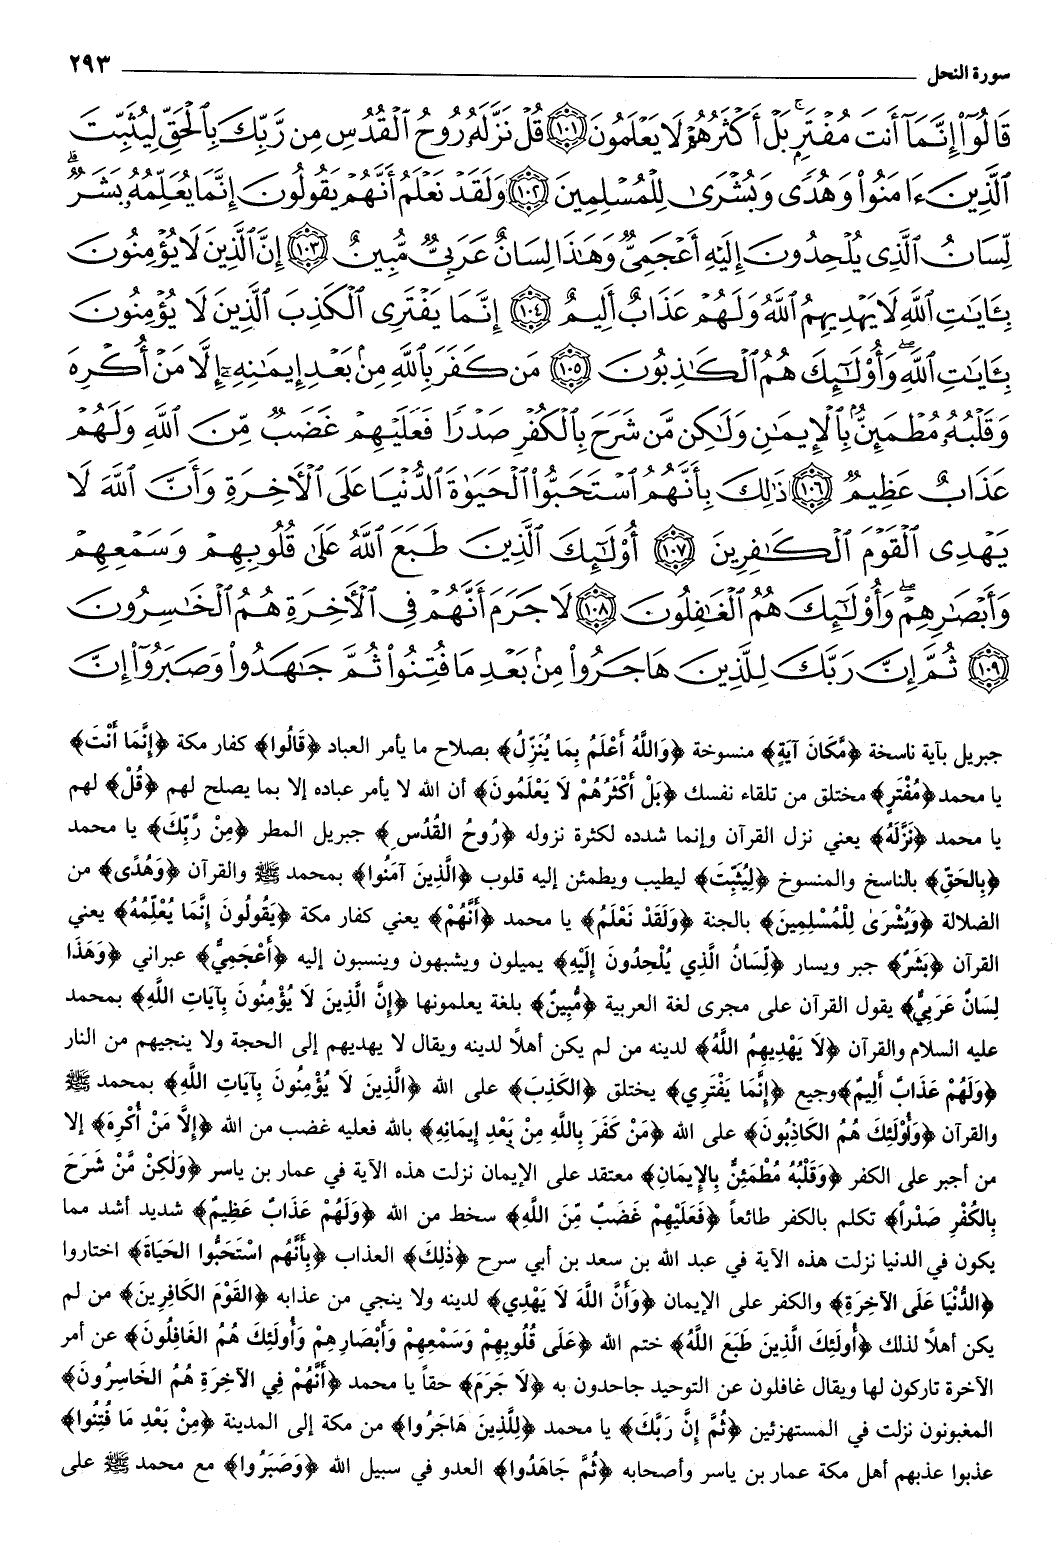 سورة النحل ٢٩٣
قَالُوٓا۟ إِنَّمَآ أَنتَ مُفْتَرٍۭ ۚ بَلْ أَكْثَرُهُمْ لَا يَعْلَمُونَ ۝١٠١ قُلْ نَزَّلَهُۥ رُوحُ ٱلْقُدُسِ مِن رَّبِّكَ بِٱلْحَقِّ لِيُثَبِّتَ
ٱلَّذِينَ ءَامَنُوا۟ وَهُدًى وَبُشْرَىٰ لِلْمُسْلِمِينَ ۝١٠٢ وَلَقَدْ نَعْلَمُ أَنَّهُمْ يَقُولُونَ إِنَّمَا يُعَلِّمُهُۥ بَشَرٌ ۗ
لِّسَانُ ٱلَّذِى يُلْحِدُونَ إِلَيْهِ أَعْجَمِىٌّ وَهَٰذَا لِسَانٌ عَرَبِىٌّ مُّبِينٌ ۝١٠٣ إِنَّ ٱلَّذِينَ لَا يُؤْمِنُونَ
بِـَٔايَٰتِ ٱللَّهِ لَا يَهْدِيهِمُ ٱللَّهُ وَلَهُمْ عَذَابٌ أَلِيمٌ ۝١٠٤ إِنَّمَا يَفْتَرِى ٱلْكَذِبَ ٱلَّذِينَ لَا يُؤْمِنُونَ
بِـَٔايَٰتِ ٱللَّهِ ۖ وَأُو۟لَٰٓئِكَ هُمُ ٱلْكَٰذِبُونَ ۝١٠٥ مَن كَفَرَ بِٱللَّهِ مِنۢ بَعْدِ إِيمَٰنِهِۦٓ إِلَّا مَنْ أُكْرِهَ
وَقَلْبُهُۥ مُطْمَئِنٌّۢ بِٱلْإِيمَٰنِ وَلَٰكِن مَّن شَرَحَ بِٱلْكُفْرِ صَدْرًا فَعَلَيْهِمْ غَضَبٌ مِّنَ ٱللَّهِ وَلَهُمْ
عَذَابٌ عَظِيمٌ ۝١٠٦ ذَٰلِكَ بِأَنَّهُمُ ٱسْتَحَبُّوا۟ ٱلْحَيَوٰةَ ٱلدُّنْيَا عَلَى ٱلْـَٔاخِرَةِ وَأَنَّ ٱللَّهَ لَا
يَهْدِى ٱلْقَوْمَ ٱلْكَٰفِرِينَ ۝١٠٧ أُو۟لَٰٓئِكَ ٱلَّذِينَ طَبَعَ ٱللَّهُ عَلَىٰ قُلُوبِهِمْ وَسَمْعِهِمْ
وَأَبْصَٰرِهِمْ ۖ وَأُو۟لَٰٓئِكَ هُمُ ٱلْغَٰفِلُونَ ۝١٠٨ لَا جَرَمَ أَنَّهُمْ فِى ٱلْـَٔاخِرَةِ هُمُ ٱلْخَٰسِرُونَ
۝١٠٩ ثُمَّ إِنَّ رَبَّكَ لِلَّذِينَ هَاجَرُوا۟ مِنۢ بَعْدِ مَا فُتِنُوا۟ ثُمَّ جَٰهَدُوا۟ وَصَبَرُوٓا۟ إِنَّ
جبريل بآية ناسخة ﴿مَّكَانَ آيَةٍ﴾ منسوخة ﴿وَاللَّهُ أَعْلَمُ بِمَا يُنَزِّلُ﴾ بصلاح ما يأمر العباد ﴿قَالُوا﴾ كفار مكة ﴿إِنَّمَا أَنْتَ﴾
يا محمد ﴿مُفْتَرٍ﴾ مختلق من تلقاء نفسك ﴿بَلْ أَكْثَرُهُمْ لَا يَعْلَمُونَ﴾ أن الله لا يأمر عباده إلا بما يصلح لهم ﴿قُلْ﴾ لهم
يا محمد ﴿نَزَّلَهُ﴾ يعني نزل القرآن وإنما شدده لكثرة نزوله ﴿رُوحُ القُدُسِ﴾ جبريل المطر ﴿مِنْ رَّبِّكَ﴾ يا محمد
﴿بِالحَقِّ﴾ بالناسخ والمنسوخ ﴿لِيُثَبِّتَ﴾ ليطيب ويطمئن إليه قلوب ﴿الَّذِينَ آمَنُوا﴾ بمحمد ﷺ والقرآن ﴿وَهُدًى﴾ من
الضلالة ﴿وَبُشْرَىٰ لِلْمُسْلِمِينَ﴾ بالجنة ﴿وَلَقَدْ نَعْلَمُ﴾ يا محمد ﴿أَنَّهُمْ﴾ يعني كفار مكة ﴿يَقُولُونَ إِنَّمَا يُعَلِّمُهُ﴾ يعني
القرآن ﴿بَشَرٌ﴾ جبر ويسار ﴿لِّسَانُ الَّذِي يُلْحِدُونَ إِلَيْهِ﴾ يميلون ويشبهون وينسبون إليه ﴿أَعْجَمِيٌّ﴾ عبراني ﴿وَهَذَا
لِسَانٌ عَرَبِيٌّ﴾ يقول القرآن على مجرى لغة العربية ﴿مُّبِينٌ﴾ بلغة يعلمونها ﴿إِنَّ الَّذِينَ لَا يُؤْمِنُونَ بِآيَاتِ اللَّهِ﴾ بمحمد
عليه السلام والقرآن ﴿لَا يَهْدِيهِمُ اللَّهُ﴾ لدينه من لم يكن أهلاً لدينه ويقال لا يهديهم إلى الحجة ولا ينجيهم من النار
﴿وَلَهُمْ عَذَابٌ أَلِيمٌ﴾ وجيع ﴿إِنَّمَا يَفْتَرِي﴾ يختلق ﴿الكَذِبَ﴾ على الله ﴿الَّذِينَ لَا يُؤْمِنُونَ بِآيَاتِ اللَّهِ﴾ بمحمد ﷺ
والقرآن ﴿وَأُوْلَئِكَ هُمُ الكَاذِبُونَ﴾ على الله ﴿مَنْ كَفَرَ بِاللَّهِ مِنْ بَعْدِ إِيمَانِهِ﴾ بالله فعليه غضب من الله ﴿إِلاَّ مَنْ أُكْرِهَ﴾ إلا
من أجبر على الكفر ﴿وَقَلْبُهُ مُطْمَئِنٌّ بِالإِيمَانِ﴾ معتقد على الإيمان نزلت هذه الآية في عمار بن ياسر ﴿وَلَكِنْ مَّنْ شَرَحَ
بِالكُفْرِ صَدْراً﴾ تكلم بالكفر طائعاً ﴿فَعَلَيْهِمْ غَضَبٌ مِّنَ اللَّهِ﴾ سخط من الله ﴿وَلَهُمْ عَذَابٌ عَظِيمٌ﴾ شديد أشد مما
يكون في الدنيا نزلت هذه الآية في عبد الله بن سعد بن أبي سرح ﴿ذٰلِكَ﴾ العذاب ﴿بِأَنَّهُم اسْتَحَبُّوا الحَيَاةَ﴾ اختاروا
﴿الدُّنْيَا عَلَى الآخِرَةِ﴾ والكفر على الإيمان ﴿وَأَنَّ اللَّهَ لَا يَهْدِي﴾ لدينه ولا ينجي من عذابه ﴿القَوْمَ الكَافِرِينَ﴾ من لم
يكن أهلاً لذلك ﴿أُولَئِكَ الَّذِينَ طَبَعَ اللَّهُ﴾ ختم الله ﴿عَلَى قُلُوبِهِمْ وَسَمْعِهِمْ وَأَبْصَارِهِمْ وَأُولَئِكَ هُمُ الغَافِلُونَ﴾ عن أمر
الآخرة تاركون لها ويقال غافلون عن التوحيد جاحدون به ﴿لَا جَرَمَ﴾ حقاً يا محمد ﴿أَنَّهُمْ فِي الآخِرَةِ هُمُ الخَاسِرُونَ﴾
المغبونون نزلت في المستهزئين ﴿ثُمَّ إِنَّ رَبَّكَ﴾ يا محمد ﴿لِلَّذِينَ هَاجَرُوا﴾ من مكة إلى المدينة ﴿مِنْ بَعْدِ مَا فُتِنُوا﴾
عذبوا عذبهم أهل مكة عمار بن ياسر وأصحابه ﴿ثُمَّ جَاهَدُوا﴾ العدو في سبيل الله ﴿وَصَبَرُوا﴾ مع محمد ﷺ على